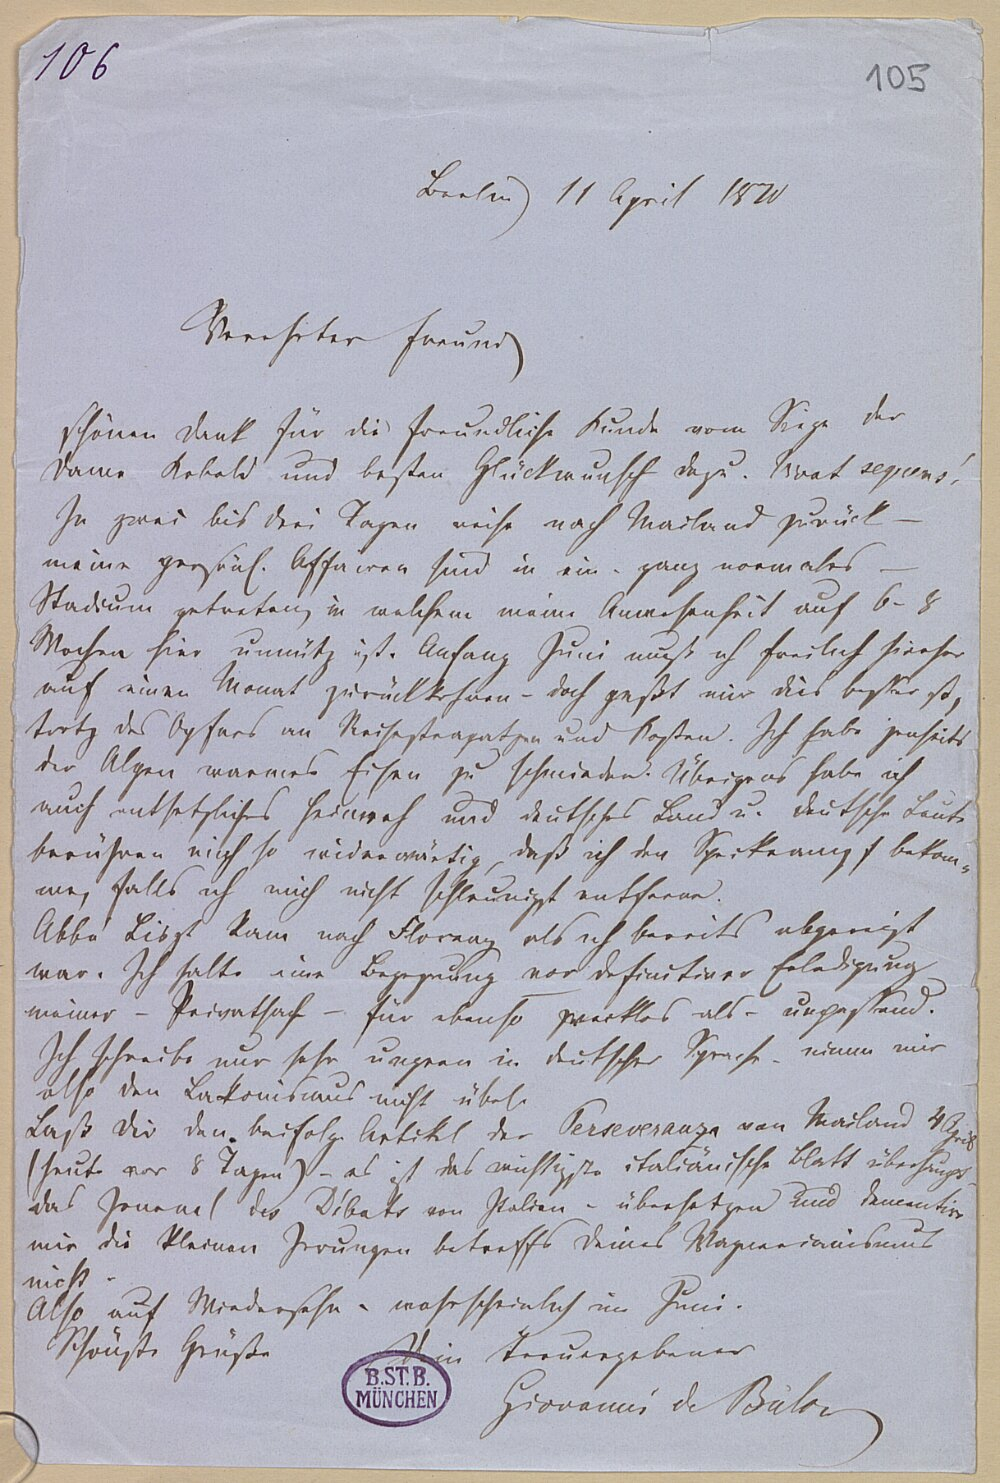 106
105
Berlin, 11 April 1870
Verehrter Freund,
schönen Dank für die freundliche Kunde vom Siege der
Dame Kobold und besten Glückwunsch dazu. Vivat sequens!
In zwei bis drei Tagen reise nach Mailand zurück –
meine persönl. Affairen sind in ein – ganz normales –
Stadium getreten, in welchem meine Anwesenheit auf 6–8
Wochen hier unnütz ist. Anfang Juni muß ich freilich hierher
auf einen Monat zurückkehren – doch paßt mir dies besser so,
trotz des Opfers an Reisestrapatzen und Kosten. Ich habe jenseits
der Alpen warmes Eisen zu schmieden. Übrigens habe ich
auch entsetzliches Heimweh und deutsches Land u. deutsche Leute
berühren mich so widerwärtig, daß ich den Speikrampf bekom-
me, falls ich mich nicht schleunigst entferne.
Abbé Liszt kam nach Florenz als ich bereits abgereist
war. Ich halte eine Begegnung vor definitiver Erledigung
meiner – Privatsach – für ebenso zwecklos als – unpassend.
Ich schreibe nur sehr ungern in deutscher Sprache – nimm mir
also den Lakonismus nicht übel.
Laß Dir den beifolg. Artikel der Perseveranza von Mailand 4 April
(heute vor 8 Tagen) – es ist das wichtigste italiänische Blatt überhaupt –
das Journal des Débats von Italien – übersetzen und dementire
mir die kleinen Irrungen betreffs Deines Wagnerianismus
nicht –
Also auf Wiedersehn – wahrscheinlich im Juni.
Schönste Grüße
Dein treuergebener
Giovanni de Bülow
B.ST.B.
MÜNCHEN